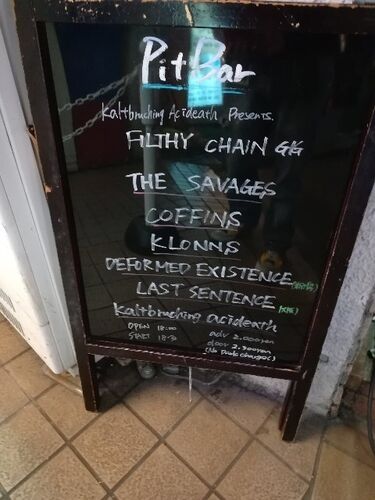 PitBar
Kaltbruching Acideath Presents.
FILTHY CHAIN GIG
THE SAVAGES
COFFINS
KLONNS
DEFORMED EXISTENCE
LAST SENTENCE
Kaltbruching Acideath
OPEN 18:00 adv 2.000yen
START 18:30 door 2.300yen
(No Drink Charge)